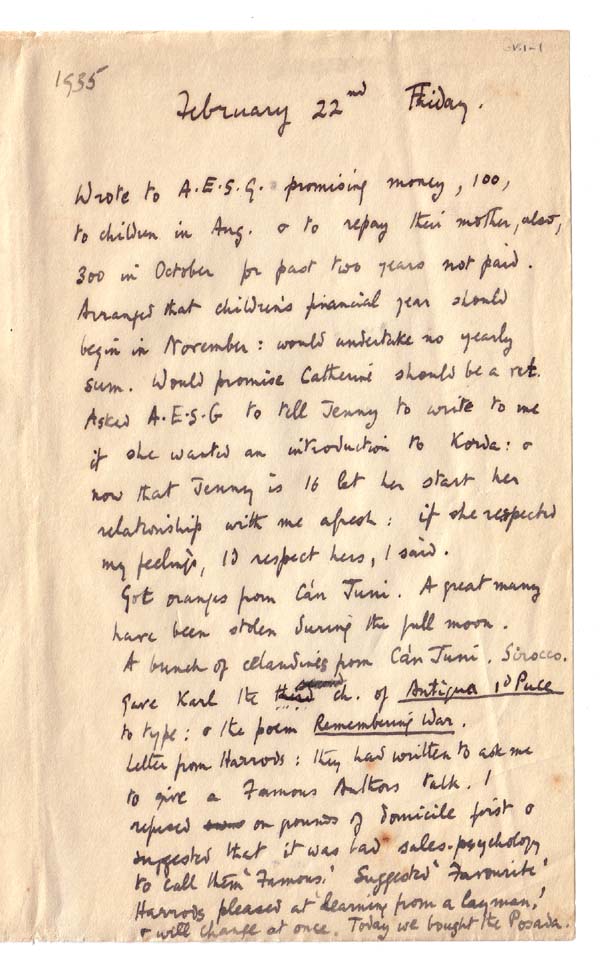 1935
February 22nd Friday.
Wrote to A.E.S.G. promising money, 100,
to children in Aug. & to repay their mother, also,
300 in October for past two years not paid.
Arranged that children's financial year should
begin in November: would undertake no yearly
sum. Would promise Catherine should be a ret.
Asked A.E.S.G to tell Jenny to write to me
if she wanted an introduction to Korda: &
now that Jenney is 16 let her start her
relationship with me afresh: if she respected
my feelings, I'd respect hers, I said.
Got oranges from Ca'n Juni. A great many
have been stolen during the full moon.
A bunch of celandines from Ca'n Juni. Sirocco.
Gave Karl the third second ch. of Antigua 1d Puce
to type: & the poem Remembering War.
Letter from Harrods: they had written to ask me
to give a Famous Authors talk. I
refused on grounds of domicile first &
suggested that it was bad sales-psychology
to call them 'Famous'. Suggested 'Favourite'
Harrods pleased at 'learning from a layman,'
& will change at once. Today we bought the Posada.